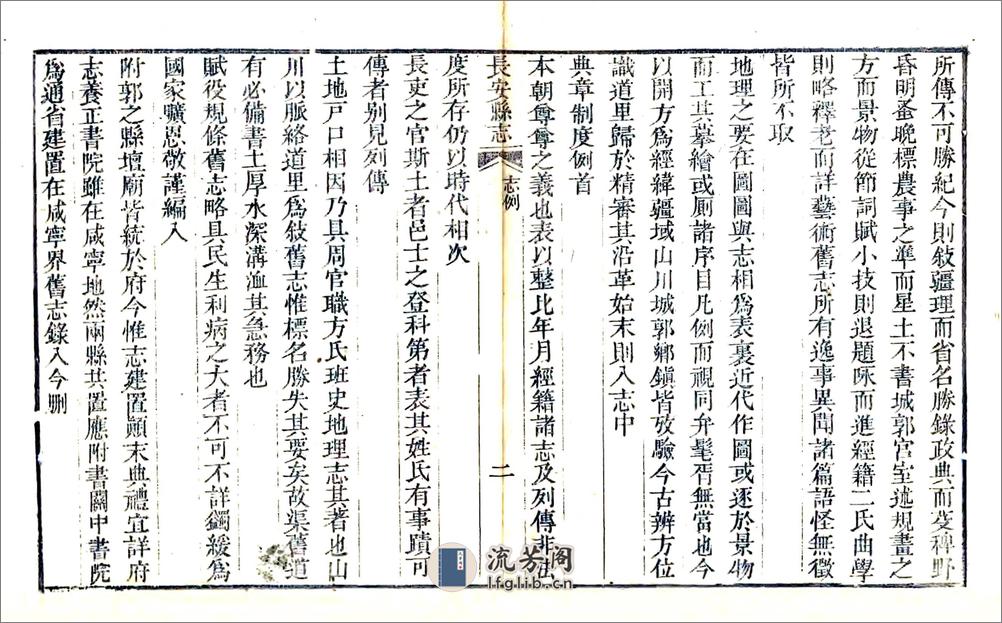 所傳不可勝紀今則敍疆理而省名勝錄政典而芟稗野
昏明蚤晚標農事之準而星土不書城郭宮室述規畫之
方而景物從節詞賦小技則退題咏而進經籍二氏曲學
則略釋老而詳藝術舊志所有逸事異聞諸篇語怪無徵
皆所不取
地理之要在圖圖與志相爲表裏近代作圖或逐於景物
而工其摹繪或厠諸序目凡例而視同弁髦胥無當也今
以開方爲經緯疆域山川城郭鄉鎭皆攷驗今古辨方位
識道里歸於精審其沿革始末則入志中
典章制度例首
本朝尊尊之義也表以整比年月經籍諸志及列傳非法
長安縣志
志例
二
度所存仍以時代相次
長吏之官斯土者邑士之登科第者表其姓氏有事蹟可
傳者別見列傳
土地戸口相因乃具周官職方氏班史地理志其著也山
川以脈絡道里爲敍舊志惟標名勝失其要矣故渠舊道
有必備書土厚水深溝洫其急務也
賦役規條舊志略具民生利病之大者不可不詳蠲緩爲
國家曠恩敬謹編入
附郭之縣壇廟皆統於府今惟志建置顚末典禮宜詳府
志養正書院雖在咸寧地然兩縣共置應附書關中書院
爲通省建置在咸寧界舊志錄入今删
流芳阁
lfglib.cn